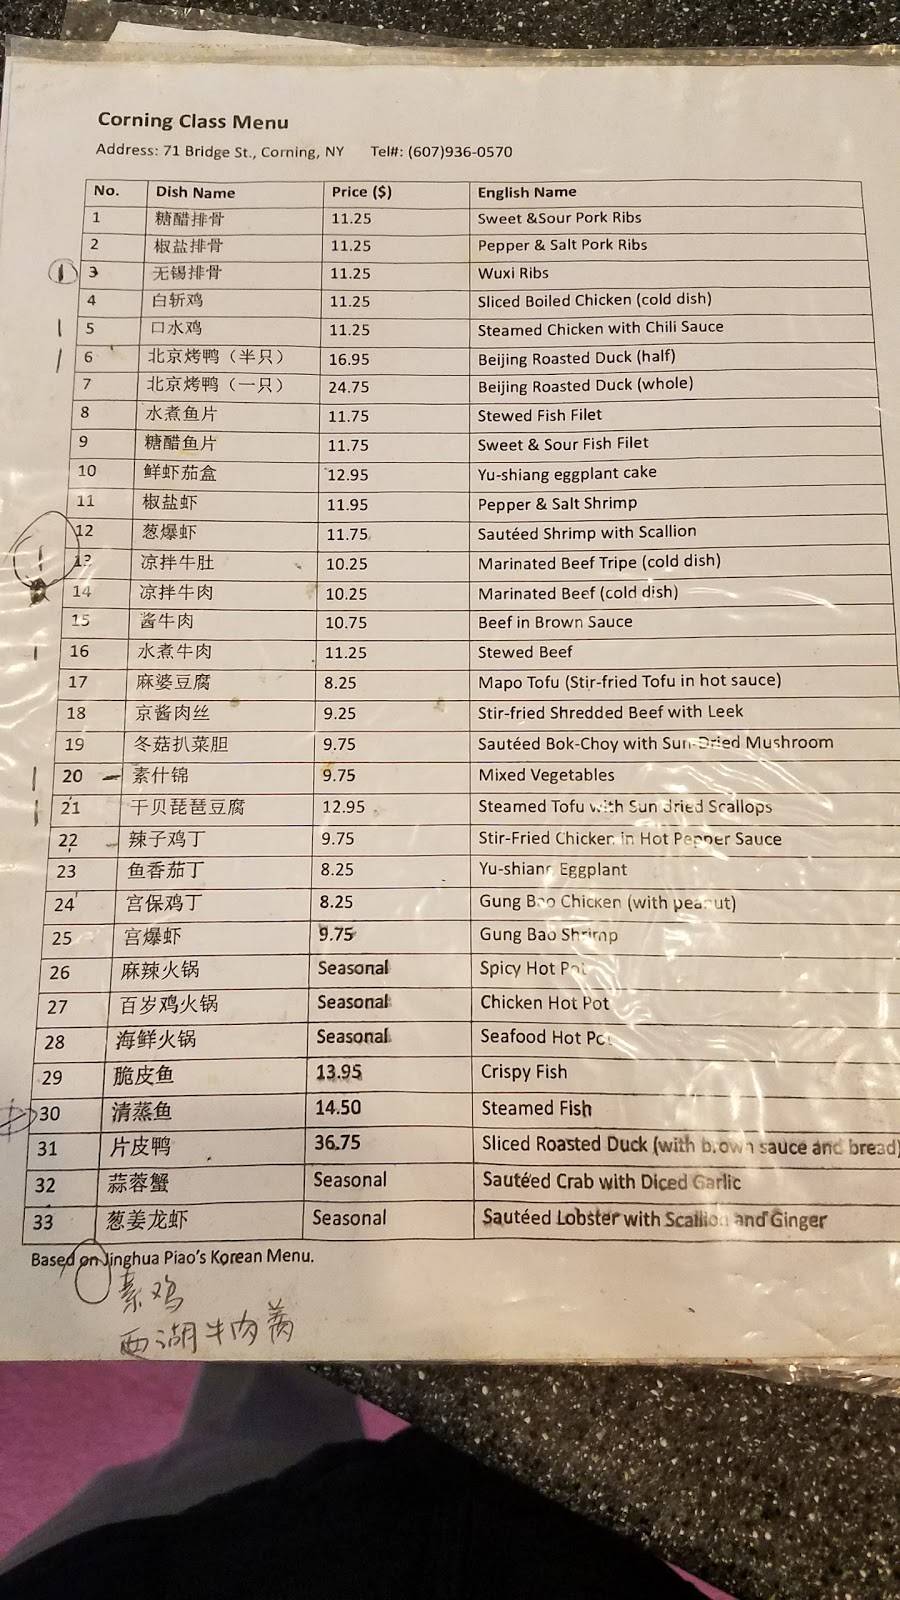 Corning Class Menu
Address: 71 Bridge St., Corning, NY Tel#: (607)936-0570
No. Dish Name Price ($) English Name
1 糖醋排骨 11.25 Sweet &Sour Pork Ribs
2 椒盐排骨 11.25 Pepper & Salt Pork Ribs
3 无锡排骨 11.25 Wuxi Ribs
4 白斩鸡 11.25 Sliced Boiled Chicken (cold dish)
5 口水鸡 11.25 Steamed Chicken with Chili Sauce
6 北京烤鸭（半只） 16.95 Beijing Roasted Duck (half)
7 北京烤鸭（一只） 24.75 Beijing Roasted Duck (whole)
8 水煮鱼片 11.75 Stewed Fish Filet
9 糖醋鱼片 11.75 Sweet & Sour Fish Filet
10 鲜虾茄盒 12.95 Yu-shiang eggplant cake
11 椒盐虾 11.95 Pepper & Salt Shrimp
12 葱爆虾 11.75 Sautéed Shrimp with Scallion
13 凉拌牛肚 10.25 Marinated Beef Tripe (cold dish)
14 凉拌牛肉 10.25 Marinated Beef (cold dish)
15 酱牛肉 10.75 Beef in Brown Sauce
16 水煮牛肉 11.25 Stewed Beef
17 麻婆豆腐 8.25 Mapo Tofu (Stir-fried Tofu in hot sauce)
18 京酱肉丝 9.25 Stir-fried Shredded Beef with Leek
19 冬菇扒菜胆 9.75 Sautéed Bok-Choy with Sun-Dried Mushroom
20 素什锦 9.75 Mixed Vegetables
21 干贝琵琶豆腐 12.95 Steamed Tofu with Sun dried Scallops
22 辣子鸡丁 9.75 Stir-Fried Chicken in Hot Pepper Sauce
23 鱼香茄丁 8.25 Yu-shiang Eggplant
24 宫保鸡丁 8.25 Gung Bao Chicken (with peanut)
25 宫爆虾 9.75 Gung Bao Shrimp
26 麻辣火锅 Seasonal Spicy Hot Pot
27 百岁鸡火锅 Seasonal Chicken Hot Pot
28 海鲜火锅 Seasonal Seafood Hot Pot
29 脆皮鱼 13.95 Crispy Fish
30 清蒸鱼 14.50 Steamed Fish
31 片皮鸭 36.75 Sliced Roasted Duck (with brown sauce and bread)
32 蒜蓉蟹 Seasonal Sautéed Crab with Diced Garlic
33 葱姜龙虾 Seasonal Sautéed Lobster with Scallion and Ginger
Based on Jinghua Piao's Korean Menu.
素鸡
西湖牛肉